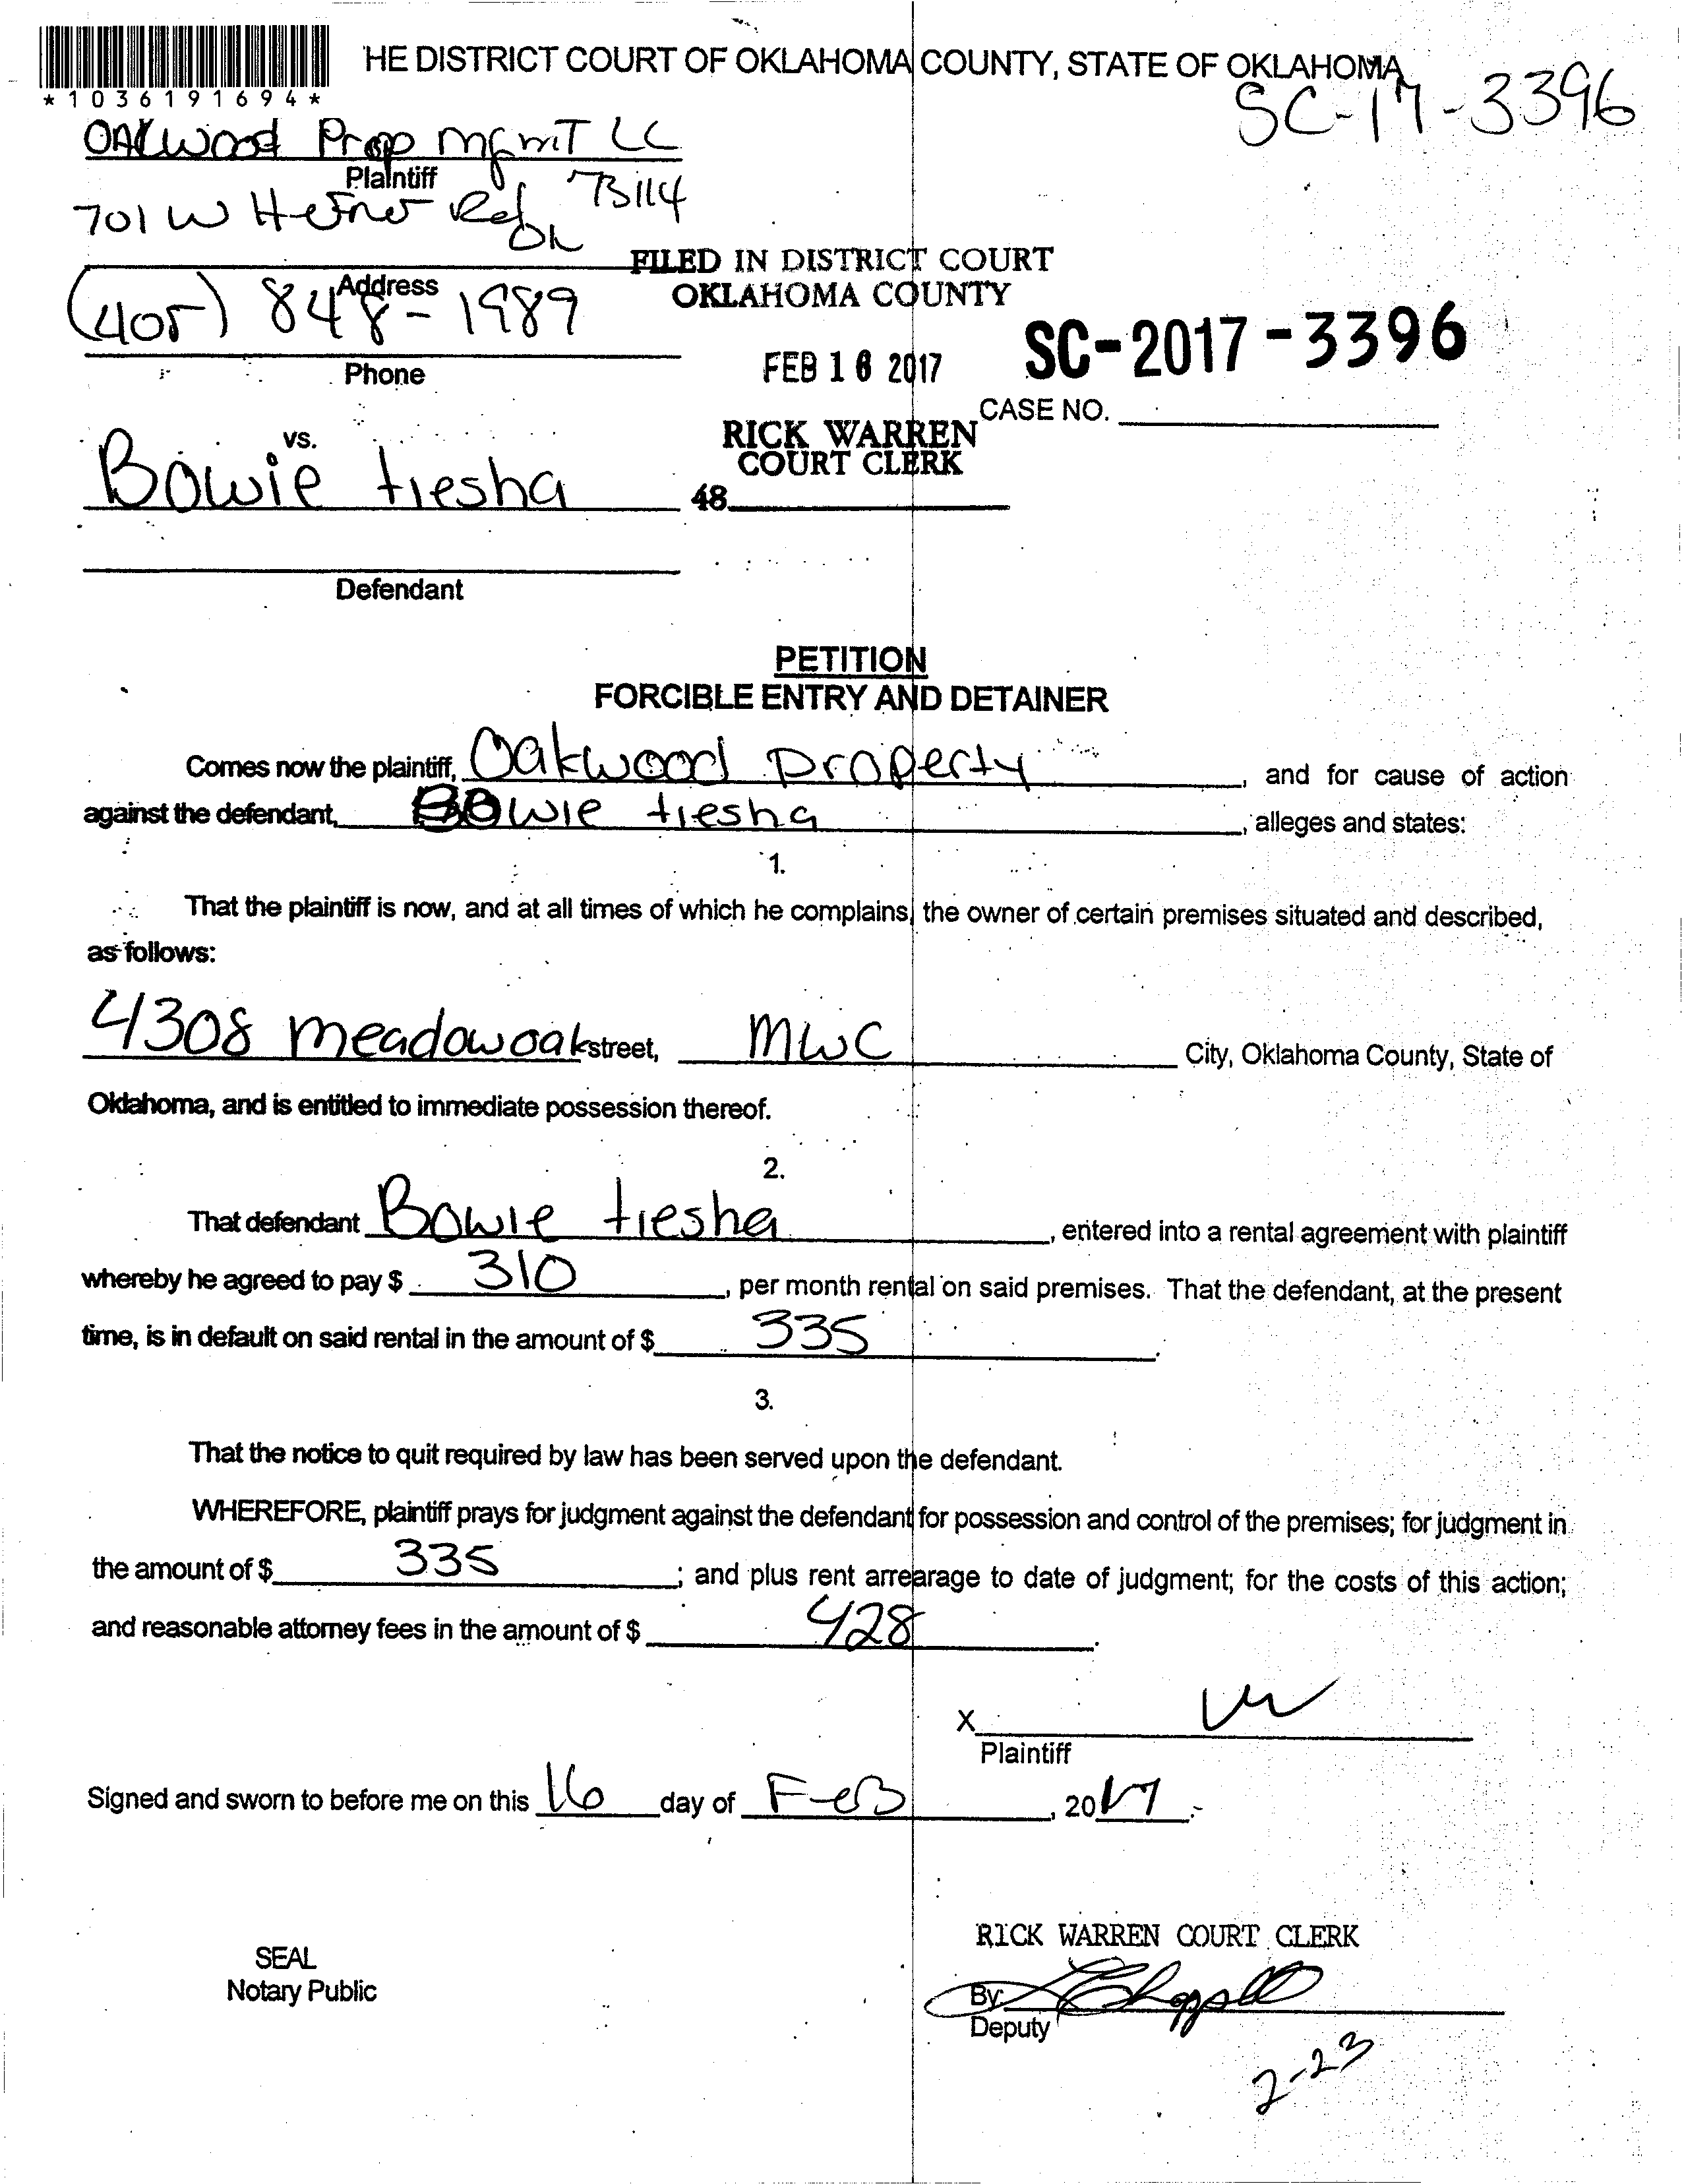 HE DISTRICT COURT OF OKLAHOMA COUNTY, STATE OF OKLAHOMA
*1036191694*
SC-17-3396
OAKWOOD Prop MGMT LC
Plaintiff
701 W Hefner Rd 73114
OK
FILED IN DISTRICT COURT
Address
OKLAHOMA COUNTY
(405) 848-1989
SC-2017-3396
FEB 16 2017
Phone
CASE NO.
RICK WARREN
vs.
COURT CLERK
Bowie tiesha
48
Defendant
PETITION
FORCIBLE ENTRY AND DETAINER
Comes now the plaintiff, Oakwood property, and for cause of action
against the defendant, Bowie tiesha, alleges and states:
1.
That the plaintiff is now, and at all times of which he complains, the owner of certain premises situated and described,
as follows:
4308 meadowoak street, MWC City, Oklahoma County, State of
Oklahoma, and is entitled to immediate possession thereof.
2.
That defendant Bowie tiesha, entered into a rental agreement with plaintiff
whereby he agreed to pay $ 310, per month rental on said premises. That the defendant, at the present
time, is in default on said rental in the amount of $ 335.
3.
That the notice to quit required by law has been served upon the defendant.
WHEREFORE, plaintiff prays for judgment against the defendant for possession and control of the premises; for judgment in
the amount of $ 335; and plus rent arrearage to date of judgment; for the costs of this action;
and reasonable attorney fees in the amount of $ 428.
X
Plaintiff
Signed and sworn to before me on this 16 day of FeB, 2017.
RICK WARREN COURT CLERK
SEAL
Notary Public
By
Deputy
2-23